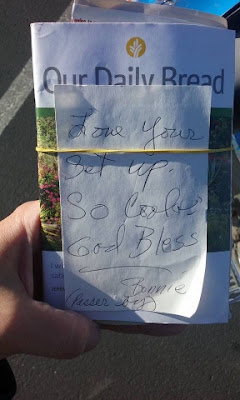 Our Daily Bread
Love Your
Set up.
So Cool
God Bless
Bonnie